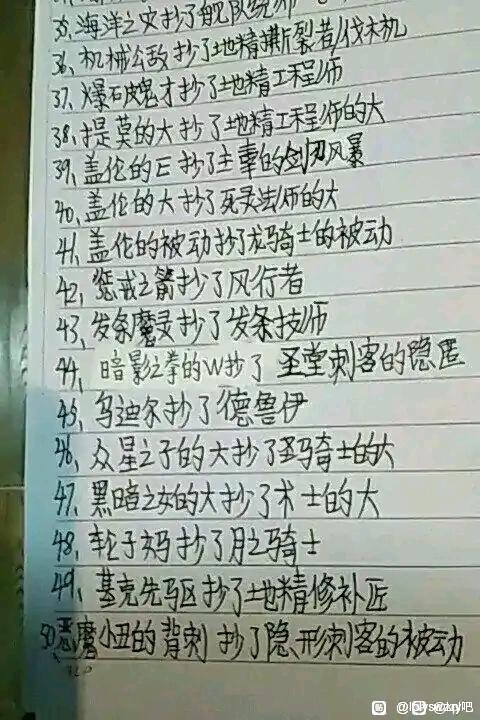 35、海洋之灾抄了舰队统帅
36、机械公敌抄了地精撕裂者/伐木机
37、爆破鬼才抄了地精工程师
38、提莫的大抄了地精工程师的大
39、盖伦的E抄了主宰的剑刃风暴
40、盖伦的大抄了死灵法师的大
41、盖伦的被动抄了龙骑士的被动
42、惩戒之箭抄了风行者
43、发条魔灵抄了发条技师
44、暗影之拳的W抄了圣堂刺客的隐匿
45、乌迪尔抄了德鲁伊
46、众星之子的大抄了圣骑士的大
47、黑暗之女的大抄了术士的大
48、轮子妈抄了月之骑士
49、基克先驱抄了地精修补匠
50、恶魔小丑的背刺抄了隐形刺客的被动